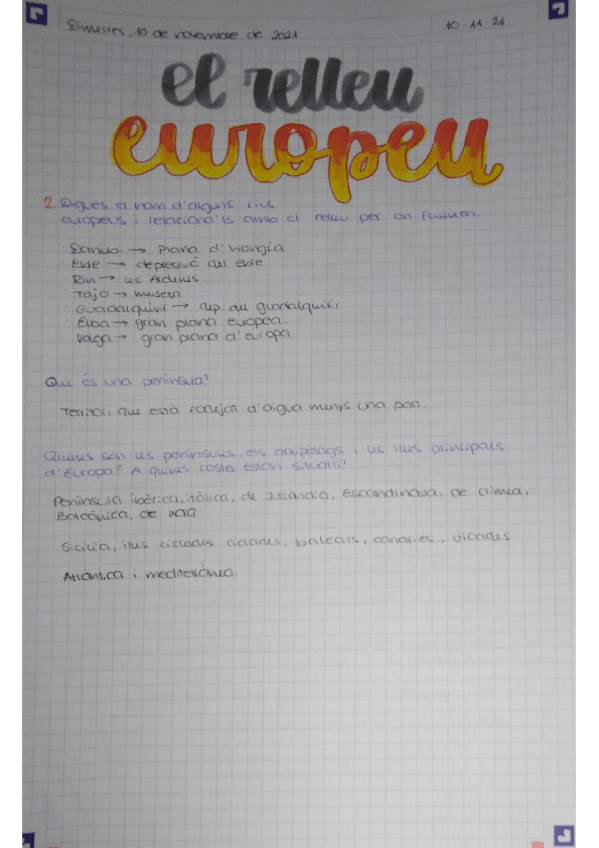 Dimecres, 10 de novembre de 2021
10·11·21
el relleu
europeu
2. Digues el nom d'alguns rius
europeus i relaciona'ls amb el relleu per on flueixen.
· Danubi → Plana d'Hongria
· Ebre → depresió del ebre
· Rin → les Ardenes
· Tajo → meseta
· Guadalquivir → dep. del guadalquivir
· Elba → gran plana europea.
Volga → gran plana d'europa
Què és una península?
Territori que està rodejat d'aigua menys una part.
Quines són les penínsules, els arxipèlags i les illes principals
d'Europa? A quines costes estan situats?
Península ibèrica, itàlica, de, escandinava, de crimea,
Balcànica, de
Sicília, illes ciclades ciclades, balears, canaries, òrcades
Atlàntica i mediterània.